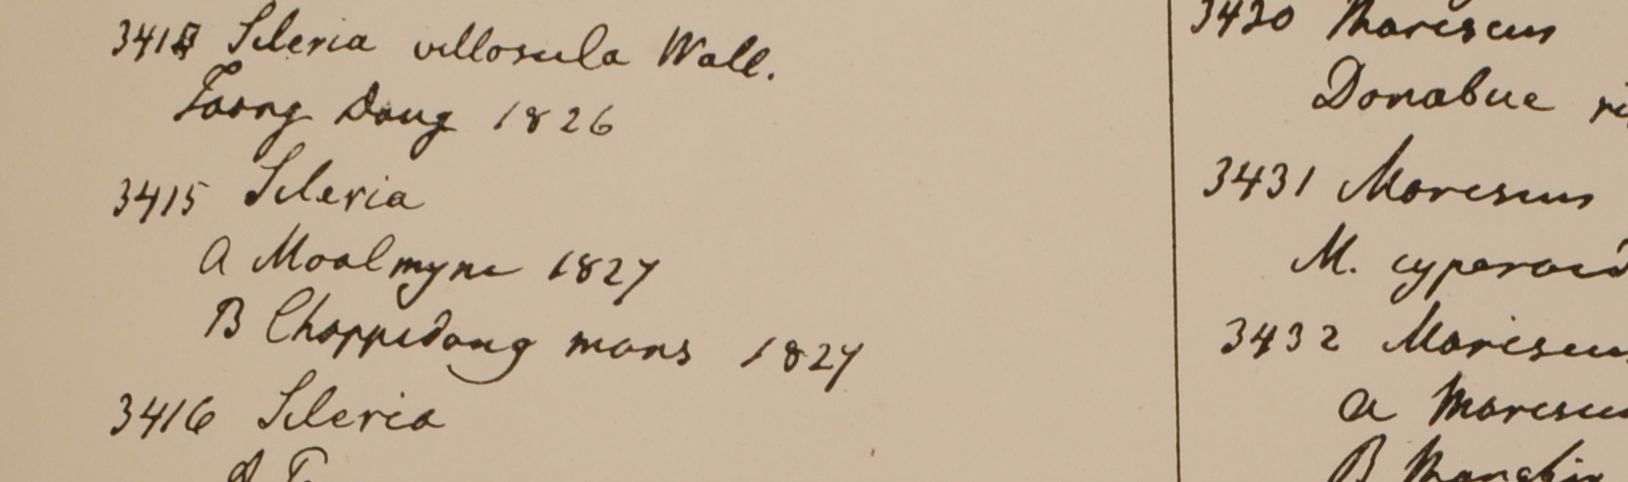 3414 Scleria villosula Wall.
Taong Doug 1826
3415 Scleria
a Moalmyne 1827
B Chappedong mons 1827
3416 Scleria
3430 Mariscus
Donabue
3431 Mariscus
M. cyperoid
3432 Mariscus
a Mariscu
B